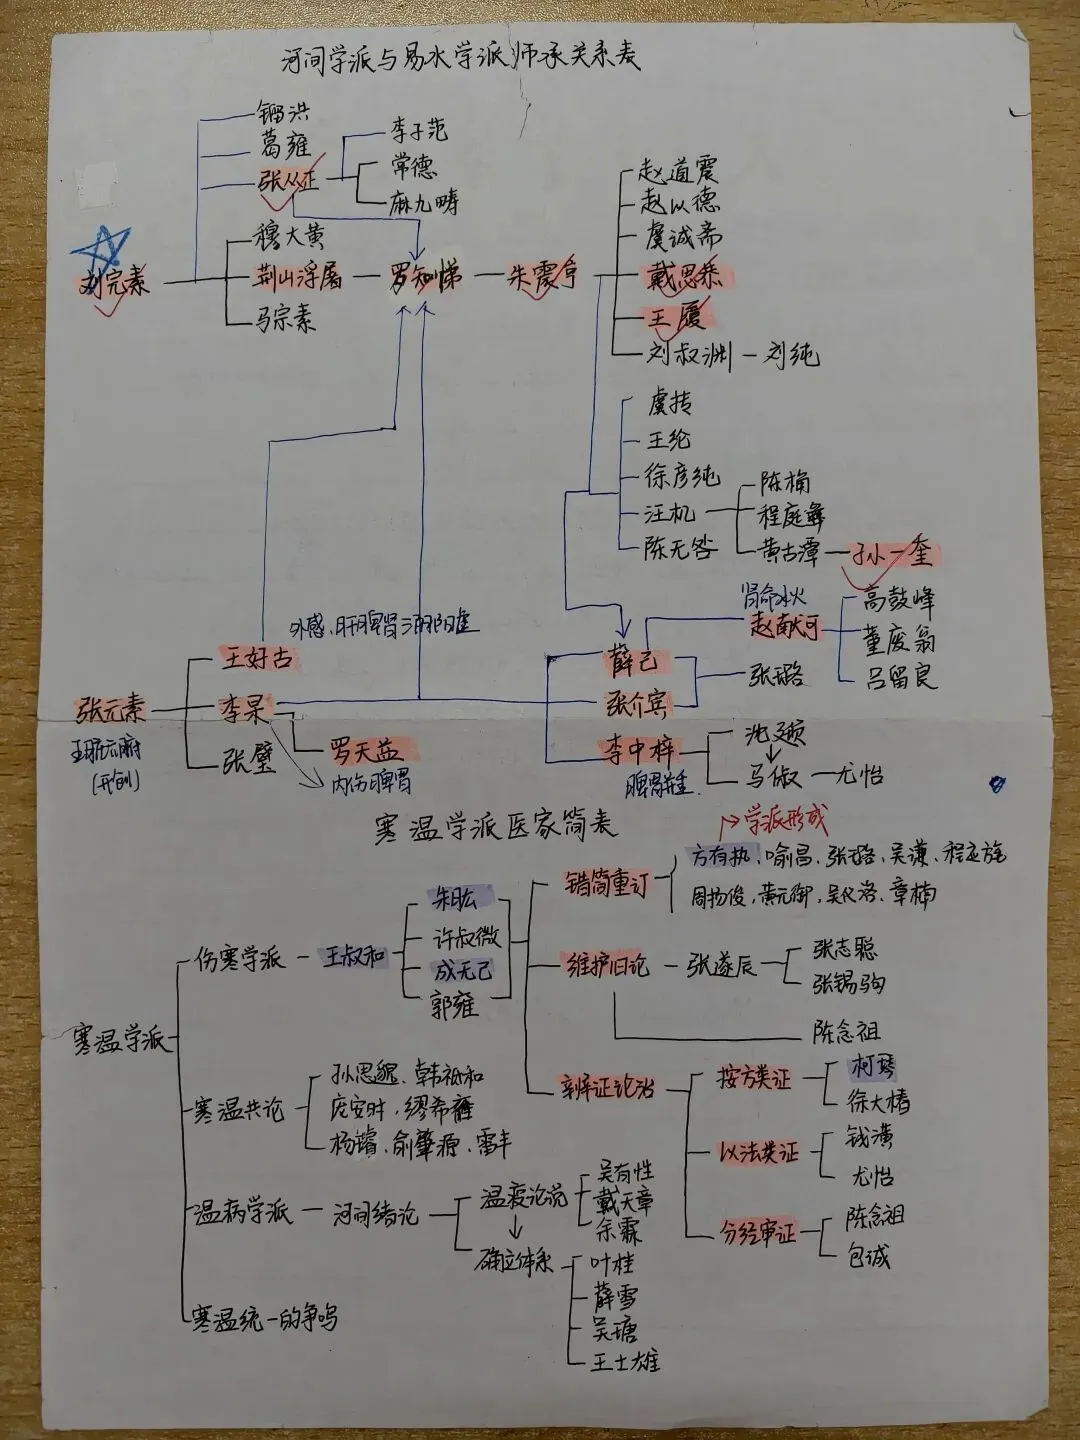 河间学派与易水学派师承关系表
镏洪
葛雍
张从正
李子范
常德
麻九畴
穆大黄
刘完素
荆山浮屠
罗知悌
朱震亨
马宗素
赵道震
赵以德
虞诚斋
戴思恭
王履
刘叔渊
刘纯
虞抟
王纶
徐彦纯
汪机
陈无咎
陈桷
程庭彝
黄古潭
孙一奎
外感、肝脾肾三阴阳虚
王好古
张元素
李杲
张璧
罗天益
内伤脾胃
(开创)
肾命水火
薛己
赵献可
高鼓峰
董废翁
吕留良
张介宾
张璐
李中梓
沈颋
马俶
尤怡
寒温学派医家简表
学派形成
寒温学派
伤寒学派
王叔和
朱肱
许叔微
成无己
郭雍
错简重订
方有执、喻昌、张璐、吴谦、程应旄
周扬俊,黄元御,吴仪洛、章楠
维护旧论
张遂辰
张志聪
张锡驹
陈念祖
辨证论治
按方类证
柯琴
徐大椿
以法类证
钱潢
尤怡
分经审证
陈念祖
包诚
寒温共论
孙思邈、韩祗和
庞安时,缪希雍
杨璿、俞肇源、雷丰
温病学派
河间绪论
温疫论说
吴有性
戴天章
余霖
确立体系
叶桂
薛雪
吴瑭
王士雄
寒温统一的争鸣